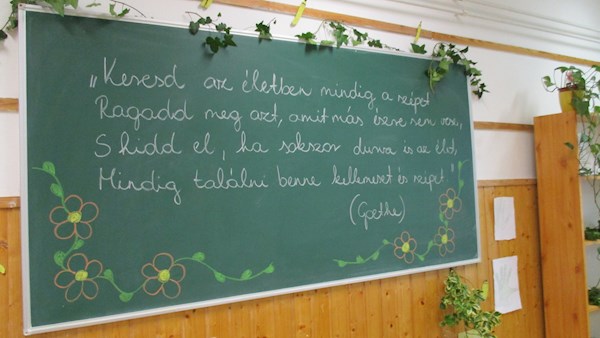 „Keresd az életben mindig a szépet
Ragadd meg azt, amit más észre sem vesz,
S hidd el, ha sokszor durva is az élet,
Mindig találni benne kellemest és szépet.
(Goethe)